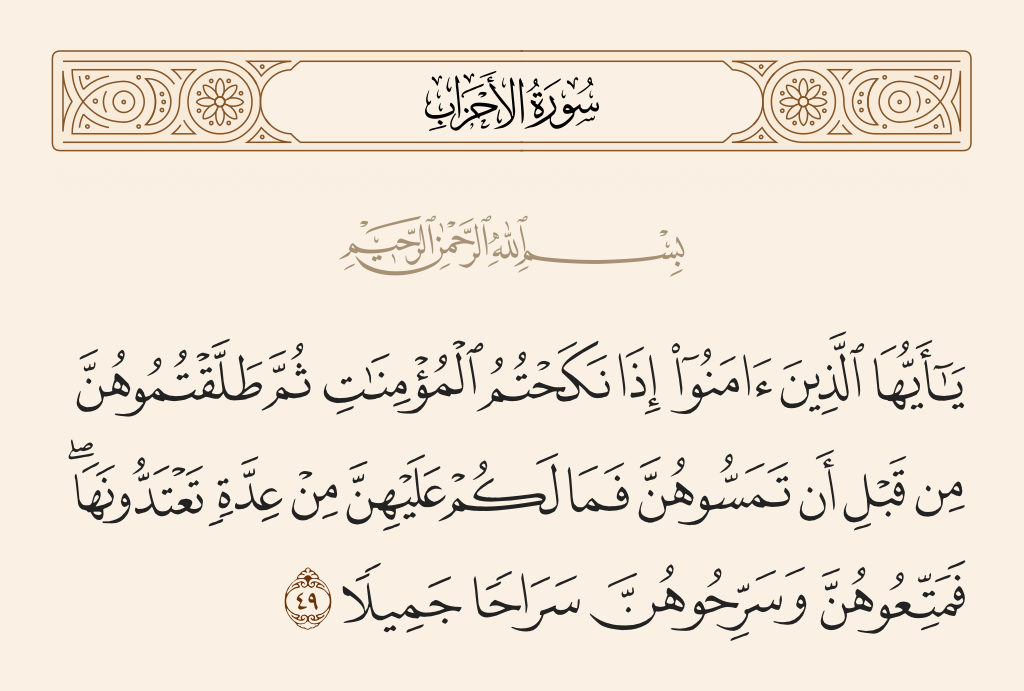 سُورَةُ الأَحْزَابِ
بِسْمِ ٱللَّهِ ٱلرَّحْمَٰنِ ٱلرَّحِيمِ
يَـٰٓأَيُّهَا ٱلَّذِينَ ءَامَنُوٓا۟ إِذَا نَكَحْتُمُ ٱلْمُؤْمِنَـٰتِ ثُمَّ طَلَّقْتُمُوهُنَّ
مِن قَبْلِ أَن تَمَسُّوهُنَّ فَمَا لَكُمْ عَلَيْهِنَّ مِنْ عِدَّةٍ تَعْتَدُّونَهَا ۖ
فَمَتِّعُوهُنَّ وَسَرِّحُوهُنَّ سَرَاحًا جَمِيلًا ٤٩